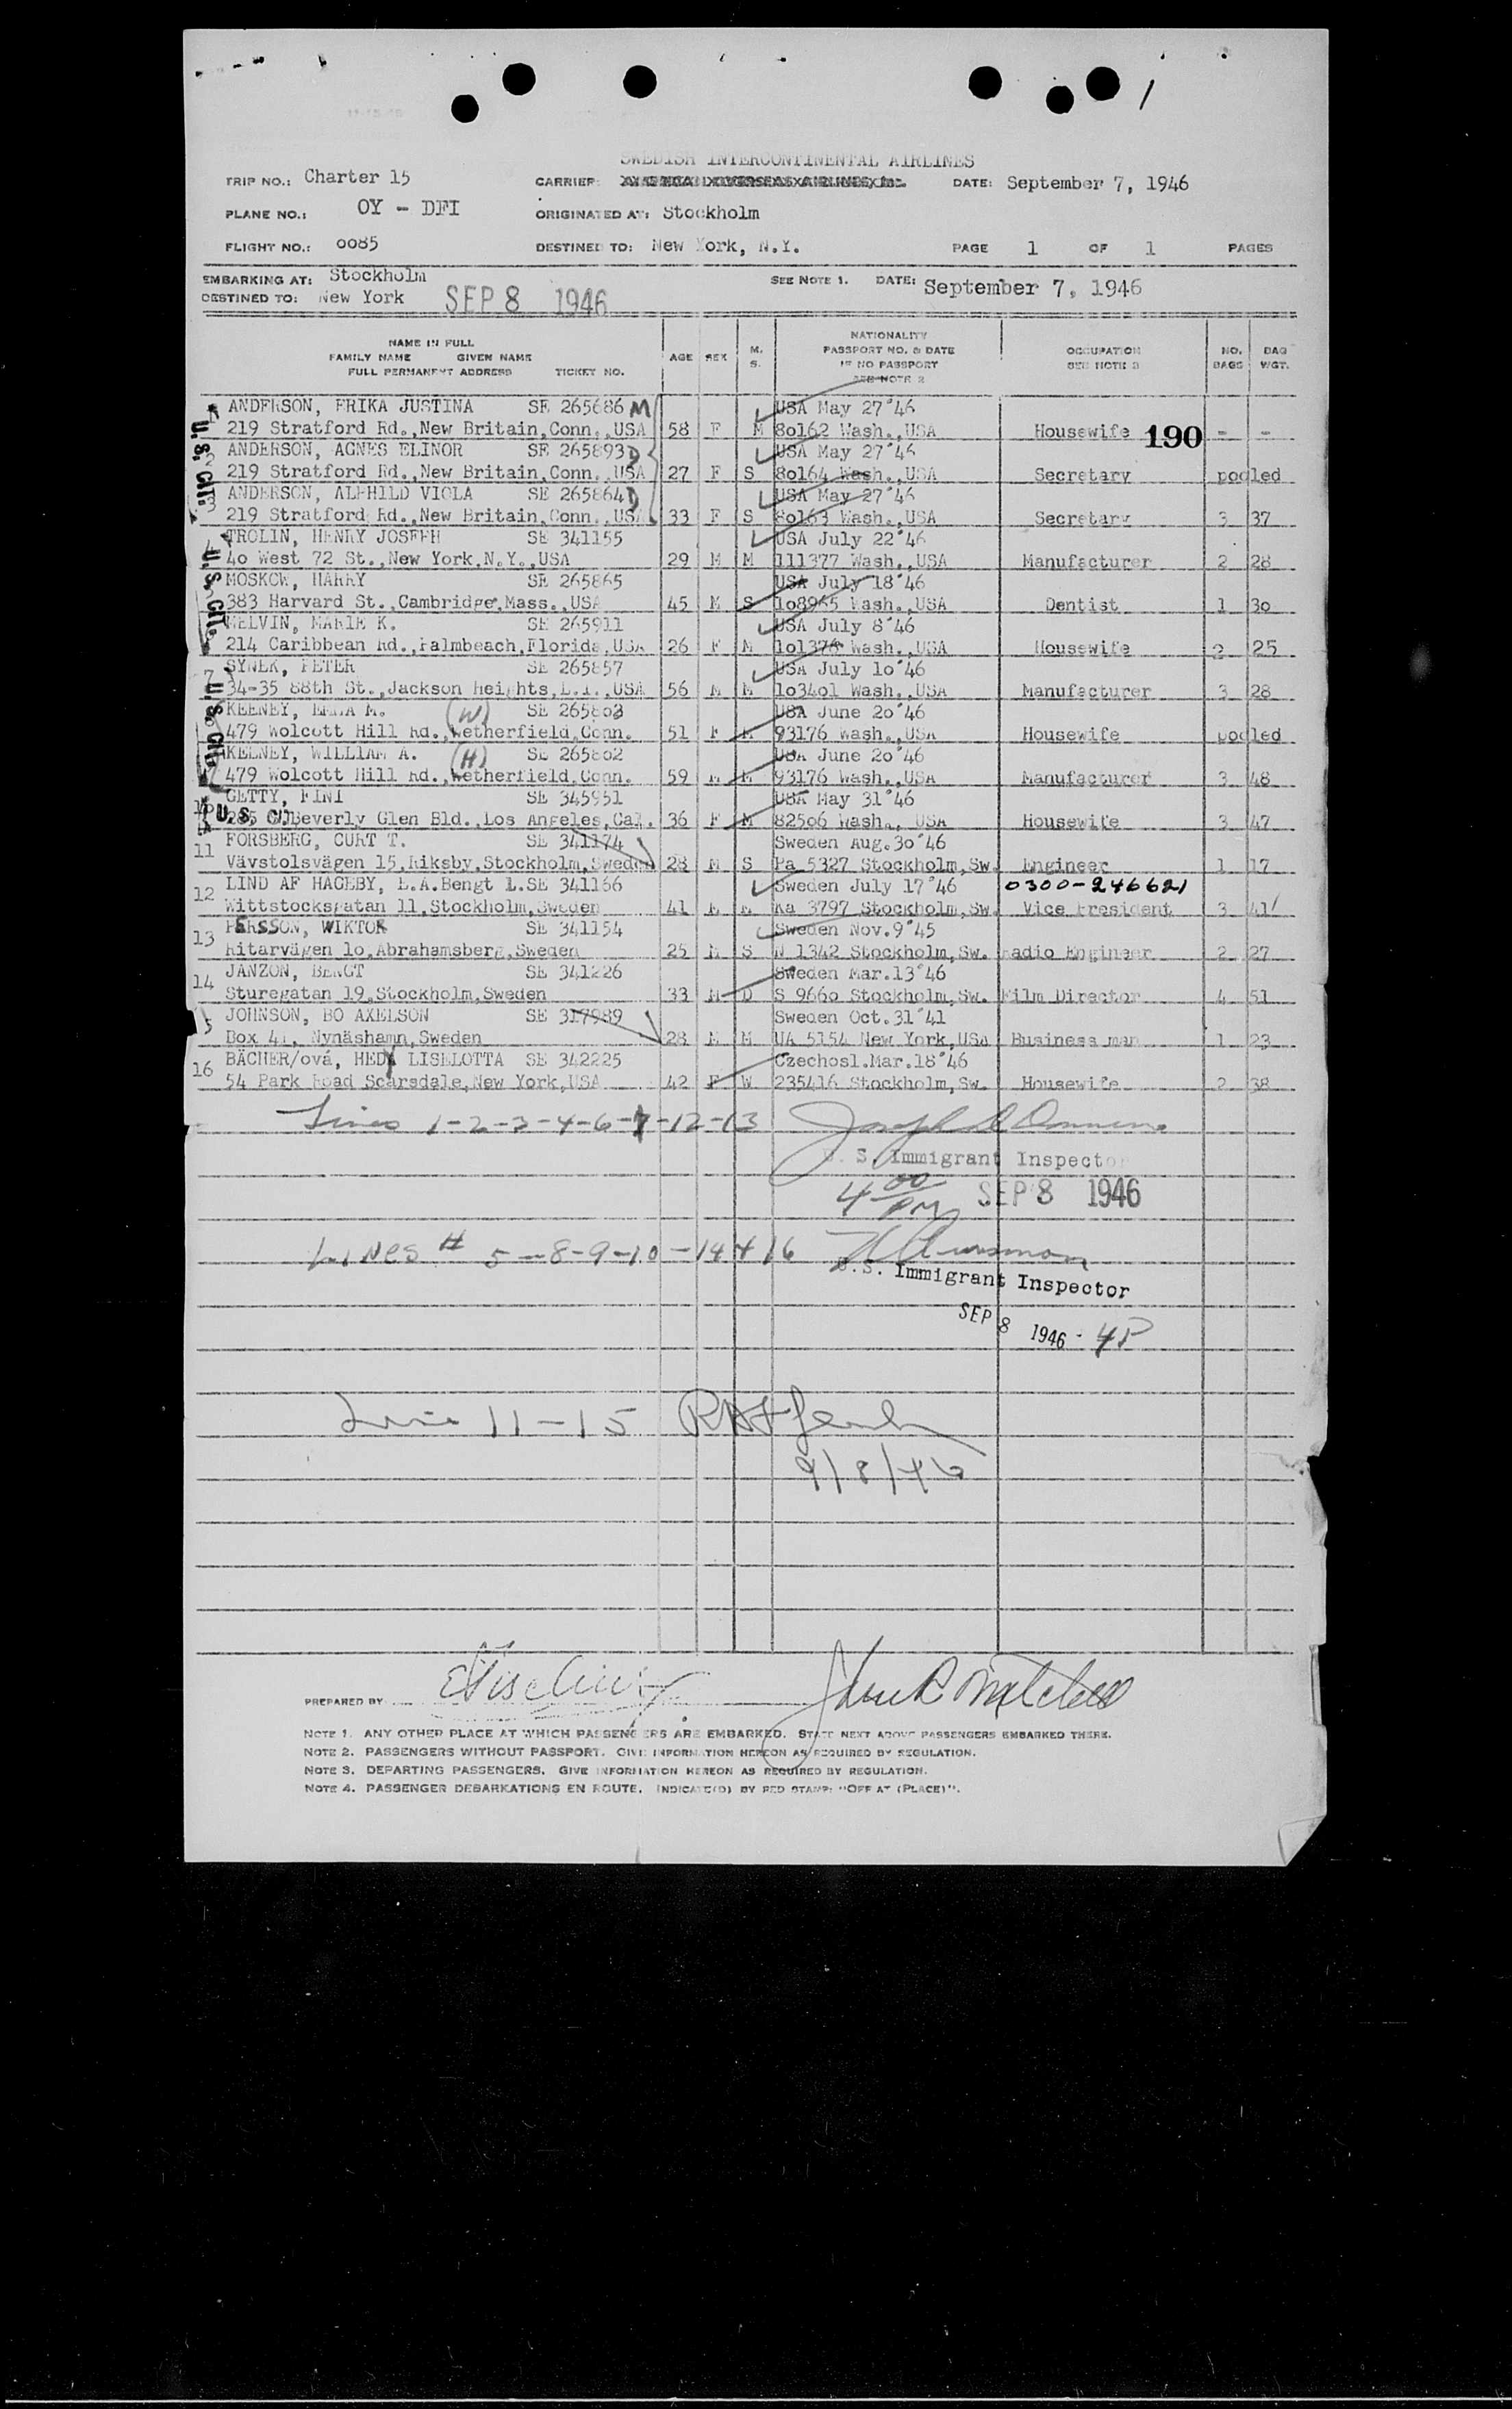 SWEDISH INTERCONTINENTAL AIRLINES
TRIP NO.: Charter 15 CARRIER: AMERICAN OVERSEAS AIRLINES, Inc. DATE: September 7, 1946
PLANE NO.: OY - DFI ORIGINATED AT: Stockholm
FLIGHT NO.: 0085 DESTINED TO: New York, N.Y. PAGE 1 OF 1 PAGES
EMBARKING AT: Stockholm SEE NOTE 1. DATE: September 7, 1946
DESTINED TO: New York SEP 8 1946
NAME IN FULL
FAMILY NAME GIVEN NAME
FULL PERMANENT ADDRESS TICKET NO.
AGE SEX M. S.
NATIONALITY
PASSPORT NO. & DATE
IF NO PASSPORT
SEE NOTE 2
OCCUPATION
SEE NOTE 3
NO. BAGS BAG WGT.
ANDERSON, ERIKA JUSTINA SE 265686 M USA May 27°46
219 Stratford Rd.,New Britain,Conn.,USA 58 F M 80162 Wash.,USA Housewife 190 - -
2 ANDERSON, AGNES ELINOR SE 265893 D USA May 27°46
219 Stratford Rd.,New Britain,Conn.,USA 27 F S 80164 Wash.,USA Secretary pooled
3 ANDERSON, ALPHILD VIOLA SE 265864 D USA May 27°46
219 Stratford Rd.,New Britain,Conn.,USA 33 F S 80163 Wash.,USA Secretary 3 37
4 TROLIN, HENRY JOSEPH SE 341155 USA July 22°46
40 West 72 St.,New York,N.Y.,USA 29 M M 111377 Wash.,USA Manufacturer 2 28
MOSKOW, HARRY SE 265865 USA July 18°46
383 Harvard St.,Cambridge,Mass.,USA 45 M S 108965 Wash.,USA Dentist 1 30
MELVIN, MARIE K. SE 265911 USA July 8°46
214 Caribbean Rd.,Palmbeach,Florida,USA 26 F M 101376 Wash.,USA Housewife 2 25
7 SYNEK, PETER SE 265857 USA July 10°46
34-35 88th St.,Jackson Heights,L.I.,USA 56 M M 103401 Wash.,USA Manufacturer 3 28
KEENEY, EMMA M. (W) SE 265803 USA June 20°46
479 Wolcott Hill Rd.,Wetherfield,Conn. 51 F M 93176 Wash.,USA Housewife pooled
KEENEY, WILLIAM A. (H) SE 265802 USA June 20°46
479 Wolcott Hill Rd.,Wetherfield,Conn. 59 M M 93176 Wash.,USA Manufacturer 3 48
GETTY, FINI SE 345951 USA May 31°46
U.S. CIT. Beverly Glen Bld.,Los Angeles,Cal. 36 F M 82506 Wash., USA Housewife 3 47
11 FORSBERG, CURT T. SE 341174 Sweden Aug.30°46
Vävstolsvägen 15,Riksby,Stockholm,Sweden 28 M S Pa 5327 Stockholm,Sw. Engineer 1 17
12 LIND AF HAGEBY, L.A.Bengt L.SE 341166 Sweden July 17°46 0300-246621
Wittstocksgatan 11,Stockholm,Sweden 41 M M Ka 3797 Stockholm,Sw. Vice President 3 41
13 PERSSON, WIKTOR SE 341154 Sweden Nov.9°45
Ritarvägen 10,Abrahamsberg,Sweden 25 M S N 1342 Stockholm,Sw. Radio Engineer 2 27
14 JANZON, BENGT SE 341226 Sweden Mar.13°46
Sturegatan 19,Stockholm,Sweden 33 M D S 9660 Stockholm,Sw. Film Director 4 51
5 JOHNSON, BO AXELSON SE 317989 Sweden Oct.31°41
Box 41, Nynäshamn,Sweden 28 M M UA 5154 New York,USA Business man 1 23
16 BÄCHER/ová, HEDY LISELOTTA SE 342225 Czechosl.Mar.18°46
54 Park Road Scarsdale,New York,USA 42 F W 235416 Stockholm,Sw. Housewife 2 38
U.S. CIT.
U.S. CIT.
U.S. CIT.
Lines 1-2-3-4-6-7-12-13
U. S. Immigrant Inspector
4 00 PM SEP 8 1946
Lines # 5-8-9-10-14+16
U.S. Immigrant Inspector
SEP 8 1946 - 4P
Line 11-15
9/8/46
PREPARED BY
NOTE 1. ANY OTHER PLACE AT WHICH PASSENGERS ARE EMBARKED. STATE NEXT ABOVE PASSENGERS EMBARKED THERE.
NOTE 2. PASSENGERS WITHOUT PASSPORT. GIVE INFORMATION HEREON AS REQUIRED BY REGULATION.
NOTE 3. DEPARTING PASSENGERS. GIVE INFORMATION HEREON AS REQUIRED BY REGULATION.
NOTE 4. PASSENGER DEBARKATIONS EN ROUTE. INDICATE(D) BY RED STAMP: "OFF AT (PLACE)".